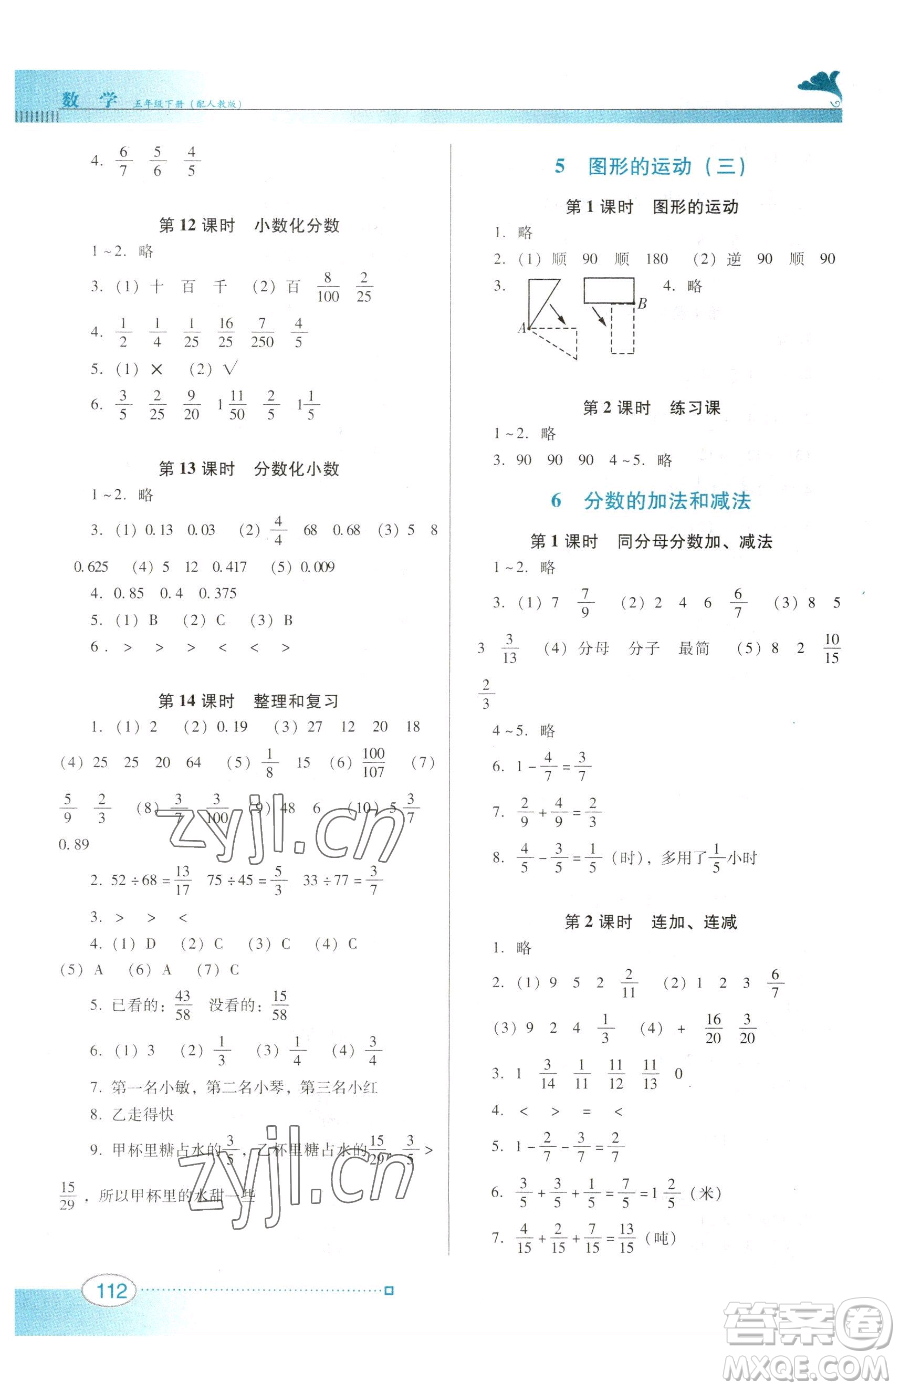 数 学 五年级下册（配人教版）
4. 6/7 5/6 4/5
第 12 课时 小数化分数
1~2. 略
3. (1) 十 百 千 (2) 百 8/100 2/25
4. 1/2 1/4 1/25 16/25 7/250 4/5
5. (1) × (2) √
6. 3/5 2/25 9/20 1 11/50 2/5 1 1/5
第 13 课时 分数化小数
1~2. 略
3. (1) 0.13 0.03 (2) 4/4 68 0.68 (3) 5 8
0.625 (4) 5 12 0.417 (5) 0.009
4. 0.85 0.4 0.375
5. (1) B (2) C (3) B
6. > > > < < >
第 14 课时 整理和复习
1. (1) 2 (2) 0.19 (3) 27 12 20 18
(4) 25 25 20 64 (5) 1/8 15 (6) 100/107 (7)
5/9 2/3 (8) 3/7 3/100 (9) 48 6 (10) 5 3/7
0.89
2. 52÷68=13/17 75÷45=5/3 33÷77=3/7
3. > > <
4. (1) D (2) C (3) C (4) C
(5) A (6) A (7) C
5. 已看的：43/58 没看的：15/58
6. (1) 3 (2) 1/3 (3) 1/4 (4) 3/4
7. 第一名小敏，第二名小琴，第三名小红
8. 乙走得快
9. 甲杯里糖占水的3/5，乙杯里糖占水的15/29，3/5>
15/29，所以甲杯里的水甜一些
112
5 图形的运动（三）
第 1 课时 图形的运动
1. 略
2. (1) 顺 90 顺 180 (2) 逆 90 顺 90
3. A B 4. 略
第 2 课时 练习课
1~2. 略
3. 90 90 90 4~5. 略
6 分数的加法和减法
第 1 课时 同分母分数加、减法
1~2. 略
3. (1) 7 7/9 (2) 2 4 6 6/7 (3) 8 5
3 3/13 (4) 分母 分子 最简 (5) 8 2 10/15
2/3
4~5. 略
6. 1-4/7=3/7
7. 2/9+4/9=2/3
8. 4/5-3/5=1/5（时），多用了1/5小时
第 2 课时 连加、连减
1. 略
2. (1) 9 5 2 2/11 (2) 1 2 3 6/7
(3) 9 2 4 1/3 (4) + 16/20 3/20
3. 1 3/14 1/11 11/11 11/13 0
4. < > = <
5. 1-2/7-3/7=2/7
6. 3/5+3/5+1/5=7/5=1 2/5（米）
7. 4/15+2/15+7/15=13/15（吨）
zyjl.cn
zyjl.cn
答案圈
MXQE.COM